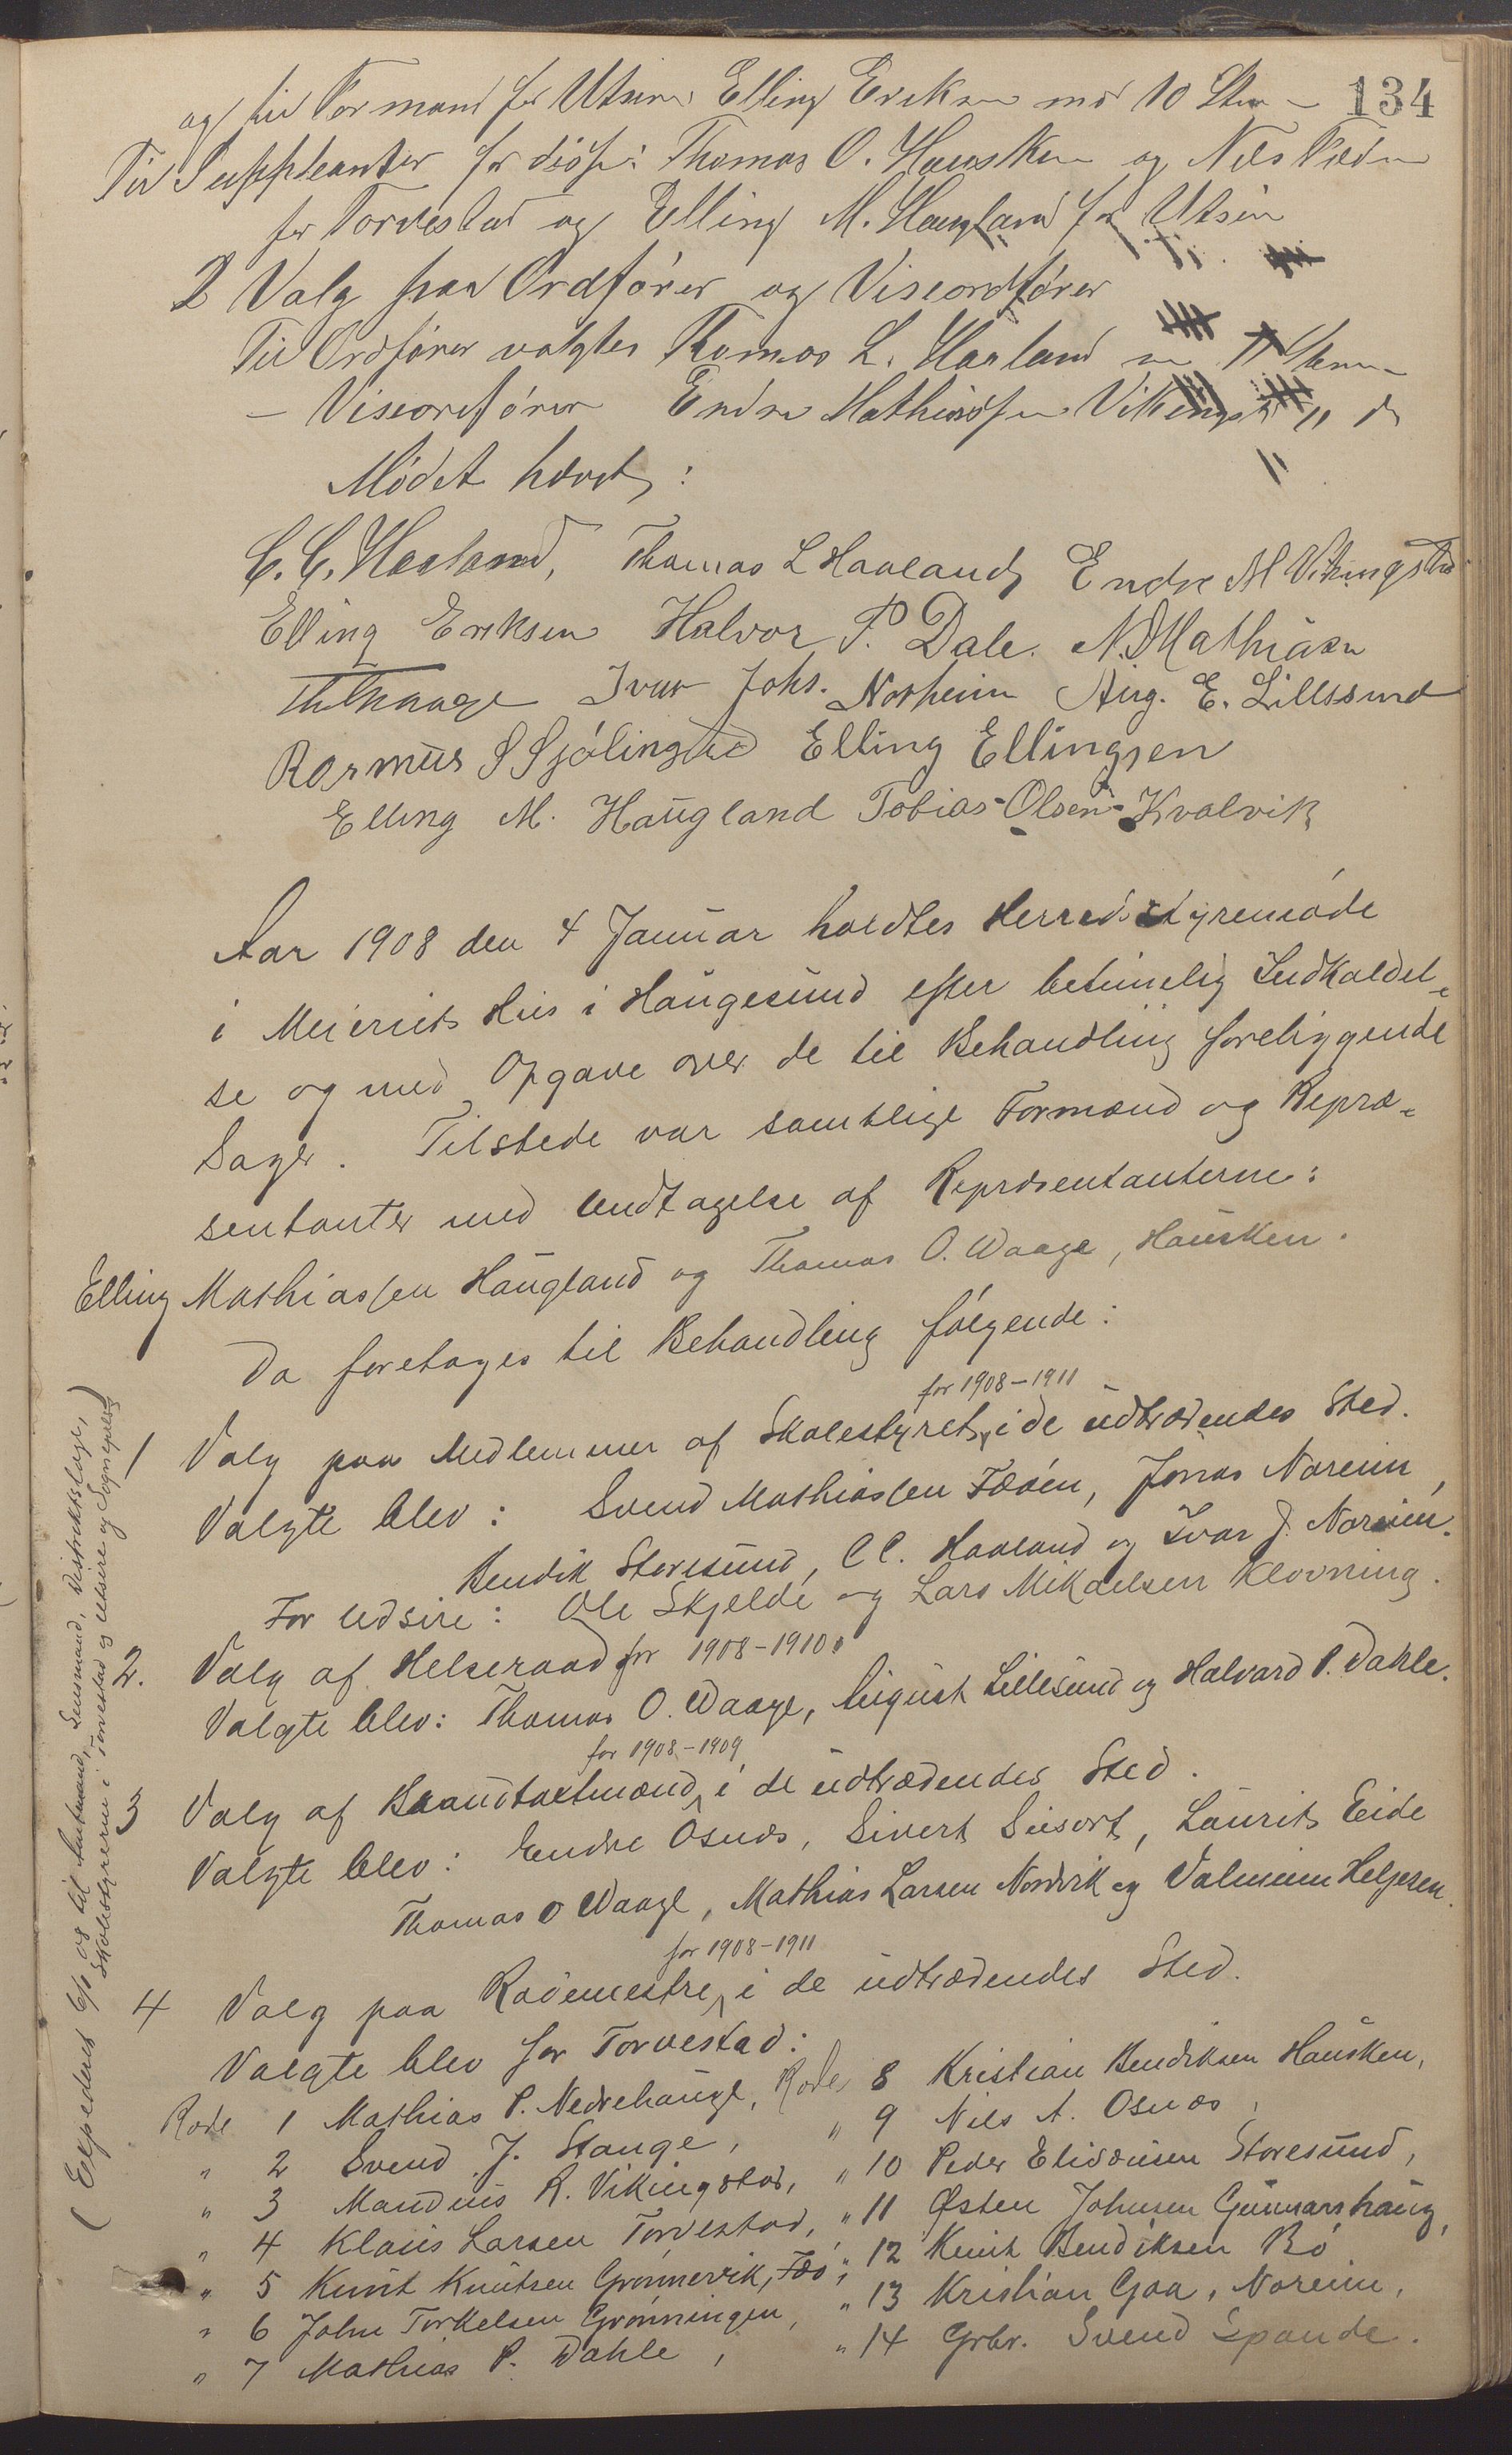 134
og til Formand for Utsire Elling Eriksen med 10 Stm –
Til Suppleanter for disse: Thomas O. Hausken og Nils
for Torvestad og Elling M. Haugland for Utsire
2 Valg paa Ordfører og Viseordfører
Til Ordfører valgtes Thomas L. Haaland 11 Stem
– Viseordfører Endre Mathiassen Vikingst 11 
Mødet hævet:
C. C. Haaland, Thomas L Haaland Endre M Vikingstad
Elling Eriksen Halvor P. Dale. N. Mathiasen
Th Waage Ivar Johs. Norheim Aug. E. Lillesund
Rasmus S Sjølingstad Elling Ellingsen
Elling M. Haugland Tobias Olsen Kvalvik
Aar 1908 den 4 Januar holdtes Herredsstyremøde
i Meieriets Hus i Haugesund efter betimelig Indkaldel-
se og med Opgave over de til Behandling foreliggende
Sager. Tilstede var samtlige Formænd og Repræ-
sentanter med Undtagelse af Repræsentanterne:
Elling Mathiassen Haugland og Thomas O. Waage, Hausken.
Da foretages til Behandling følgende:
for 1908–1911
1 Valg paa Medlemmer af Skolestyret, i de udtrædendes Sted.
Valgte blev: Svend Mathiassen Fæøen, Jonas Noreim,
Bendik Storesund, C C. Haaland og Ivar J. Noreim.
For Udsire: Ole Skjelde og Lars Mikaelsen Klovning.
2. Valg af Helseraad for 1908–1910.
Valgte blev: Thomas O. Waage, August Lillesund og Halvard P. Dahle.
for 1908–1909
3 Valg af Brandtaxtmænd, i de udtrædendes Sted.
Valgte blev: Endre Osnes, Sivert Susort, Laurits Eide
Thomas O Waage, Mathias Larsen Nordvik og Valmuen Helgesen.
for 1908–1911
4 Valg paa Rodemestre, i de udtrædendes Sted.
Valgte blev for Torvestad:
Rode 1 Mathias P. Nedrehauge, Rode 8 Kristian Bendiksen Hausken,
" 2 Svend J. Stange, " 9 Nils A. Osnes,
" 3 Mandius R. Vikingstad, " 10 Peder Elisæusen Storesund,
" 4 Klaus Larsen Torvestad, " 11 Østen Johnsen Gunnarshaug,
" 5 Knut Knutsen Grønnevik, Fæø, " 12 Knut Bendiksen Bø
" 6 John Torkelsen Grønningen, " 13 Kristian Goa, Noreim,
" 7 Mathias P. Dahle, " 14 Grbr. Svend Spande.
(Expederet 6/10 og til Amtmand, Lensmand, Distriktslæge,
Skolestyrerne i Torvestad og Utsire og Sogneprest)